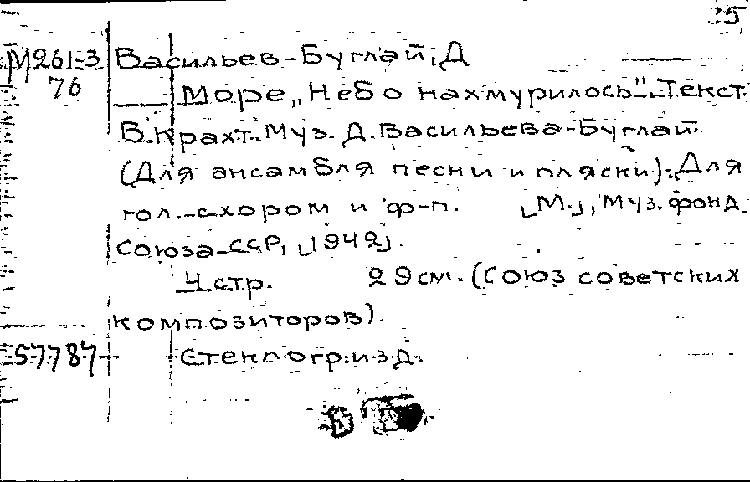 5
М261-3 Васильев-Буглай, Д
76 Море „Небо нахмурилось". Текст
В. Крахт. Муз. Д. Васильева-Буглай
(Для ансамбля песни и пляски). Для
гол. с хором и ф-п. [М.], Муз. фонд
Союза ССР, [1942].
4 стр. 29 см. (Союз советских
композиторов).
57787 Стеклогр. изд.